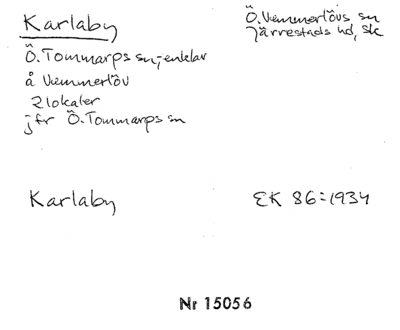 Karlaby
Ö. Vemmerlövs sn
Järrestads hd, Sk
Ö. Tommarps sn-enklav
å Vemmerlöv
2 lokaler
jfr Ö. Tommarps sn
Karlaby
EK 86:1934
Nr 15056